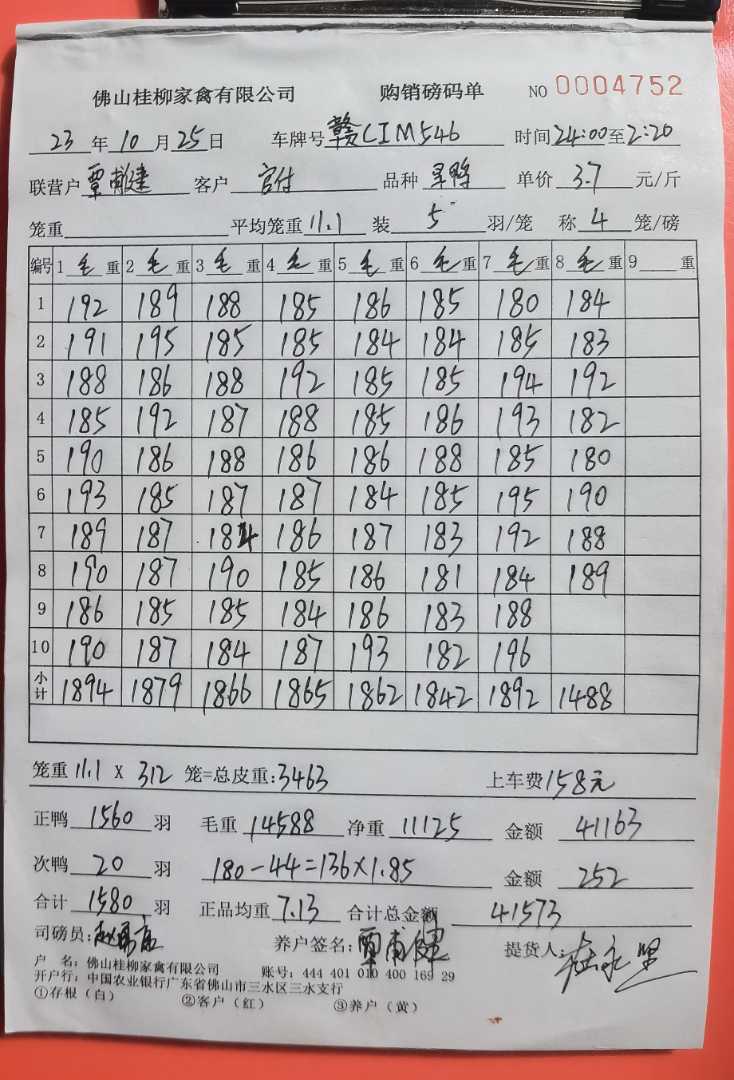 佛山桂柳家禽有限公司 购销磅码单 NO 0004752
23 年 10 月 25 日 车牌号 赣CIM546 时间 24:00 至 2:20
联营户 覃甫建 客户 官付 品种 旱鸭 单价 3.7 元/斤
笼重 平均笼重 11.1 装 5 羽/笼 称 4 笼/磅
编号 1 毛 重 2 毛 重 3 毛 重 4 毛 重 5 毛 重 6 毛 重 7 毛 重 8 毛 重 9 重
1 192 189 188 185 186 185 180 184
2 191 195 185 185 184 184 185 183
3 188 186 188 192 185 185 194 192
4 185 192 187 188 185 186 193 182
5 190 186 188 186 186 188 185 180
6 193 185 187 187 184 185 195 190
7 189 187 184 186 187 183 192 188
8 190 187 190 185 186 181 184 189
9 186 185 185 184 186 183 188
10 190 187 184 187 193 182 196
小计 1894 1879 1866 1865 1862 1842 1892 1488
笼重 11.1 X 312 笼=总皮重:3463 上车费 158元
正鸭 1560 羽 毛重 14588 净重 11125 金额 41163
次鸭 20 羽 180-44=136×1.85 金额 252
合计 1580 羽 正品均重 7.13 合计总金额 41573
司磅员: 养户签名:覃甫健 提货人:
户 名:佛山桂柳家禽有限公司 账号:444 401 010 400 169 29
开户行:中国农业银行广东省佛山市三水区三水支行
①存根(白) ②客户(红) ③养户(黄)